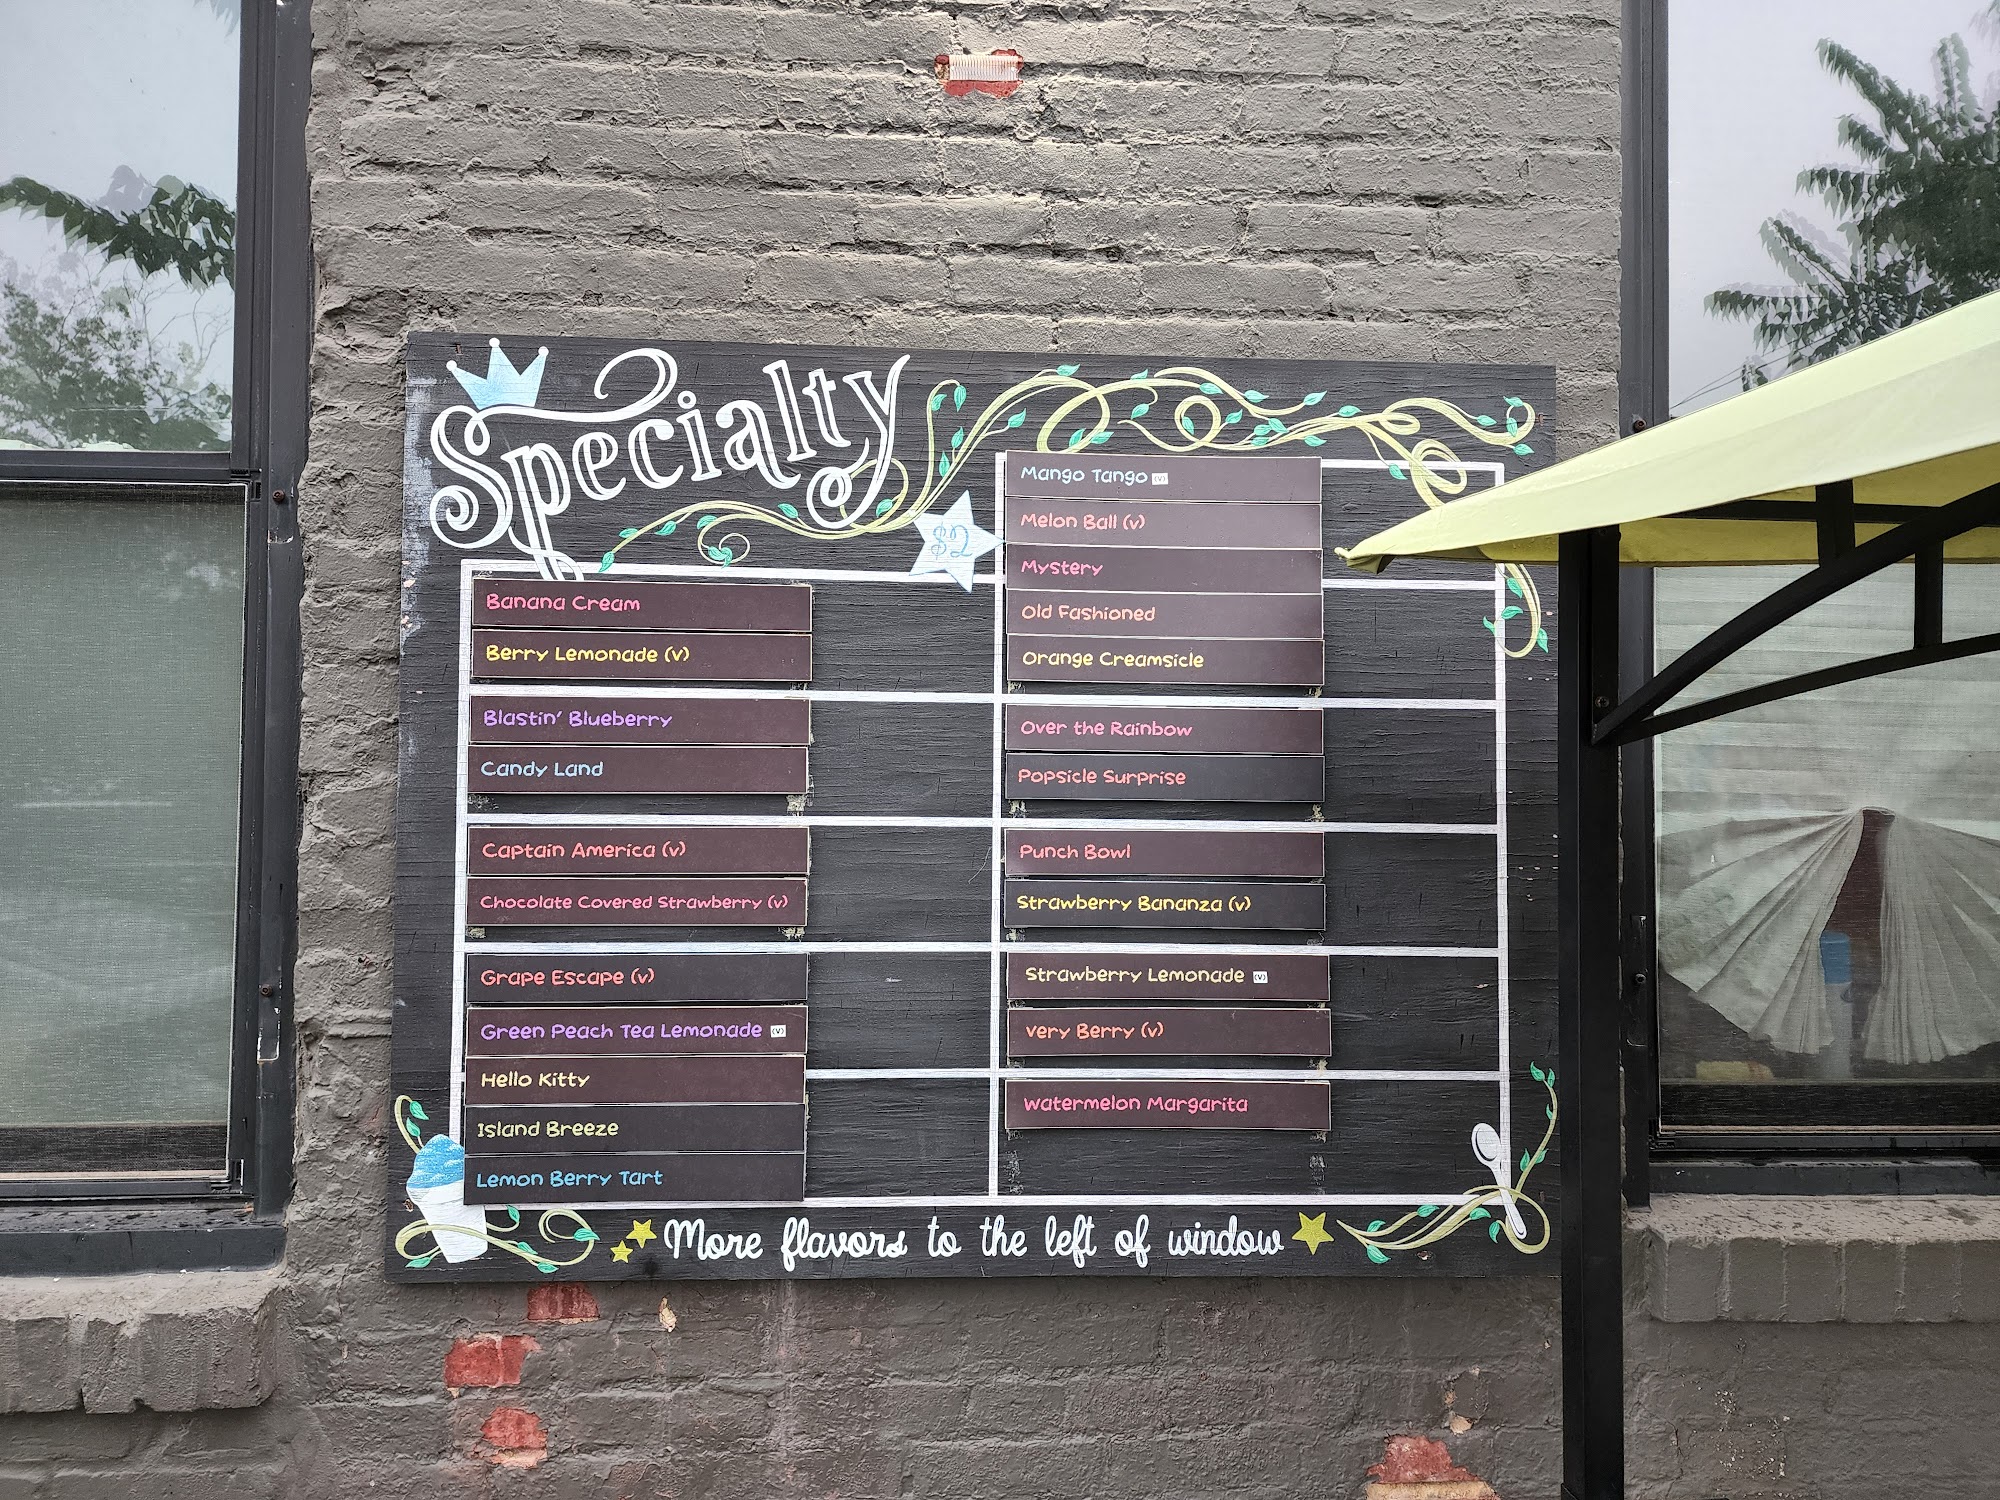 Specialty
$2
Banana Cream
Berry Lemonade (v)
Blastin' Blueberry
Candy Land
Captain America (v)
Chocolate Covered Strawberry (v)
Grape Escape (v)
Green Peach Tea Lemonade (v)
Hello Kitty
Island Breeze
Lemon Berry Tart
Mango Tango (v)
Melon Ball (v)
Mystery
Old Fashioned
Orange Creamsicle
Over the Rainbow
Popsicle Surprise
Punch Bowl
Strawberry Bananza (v)
Strawberry Lemonade (v)
Very Berry (v)
Watermelon Margarita
More flavors to the left of window